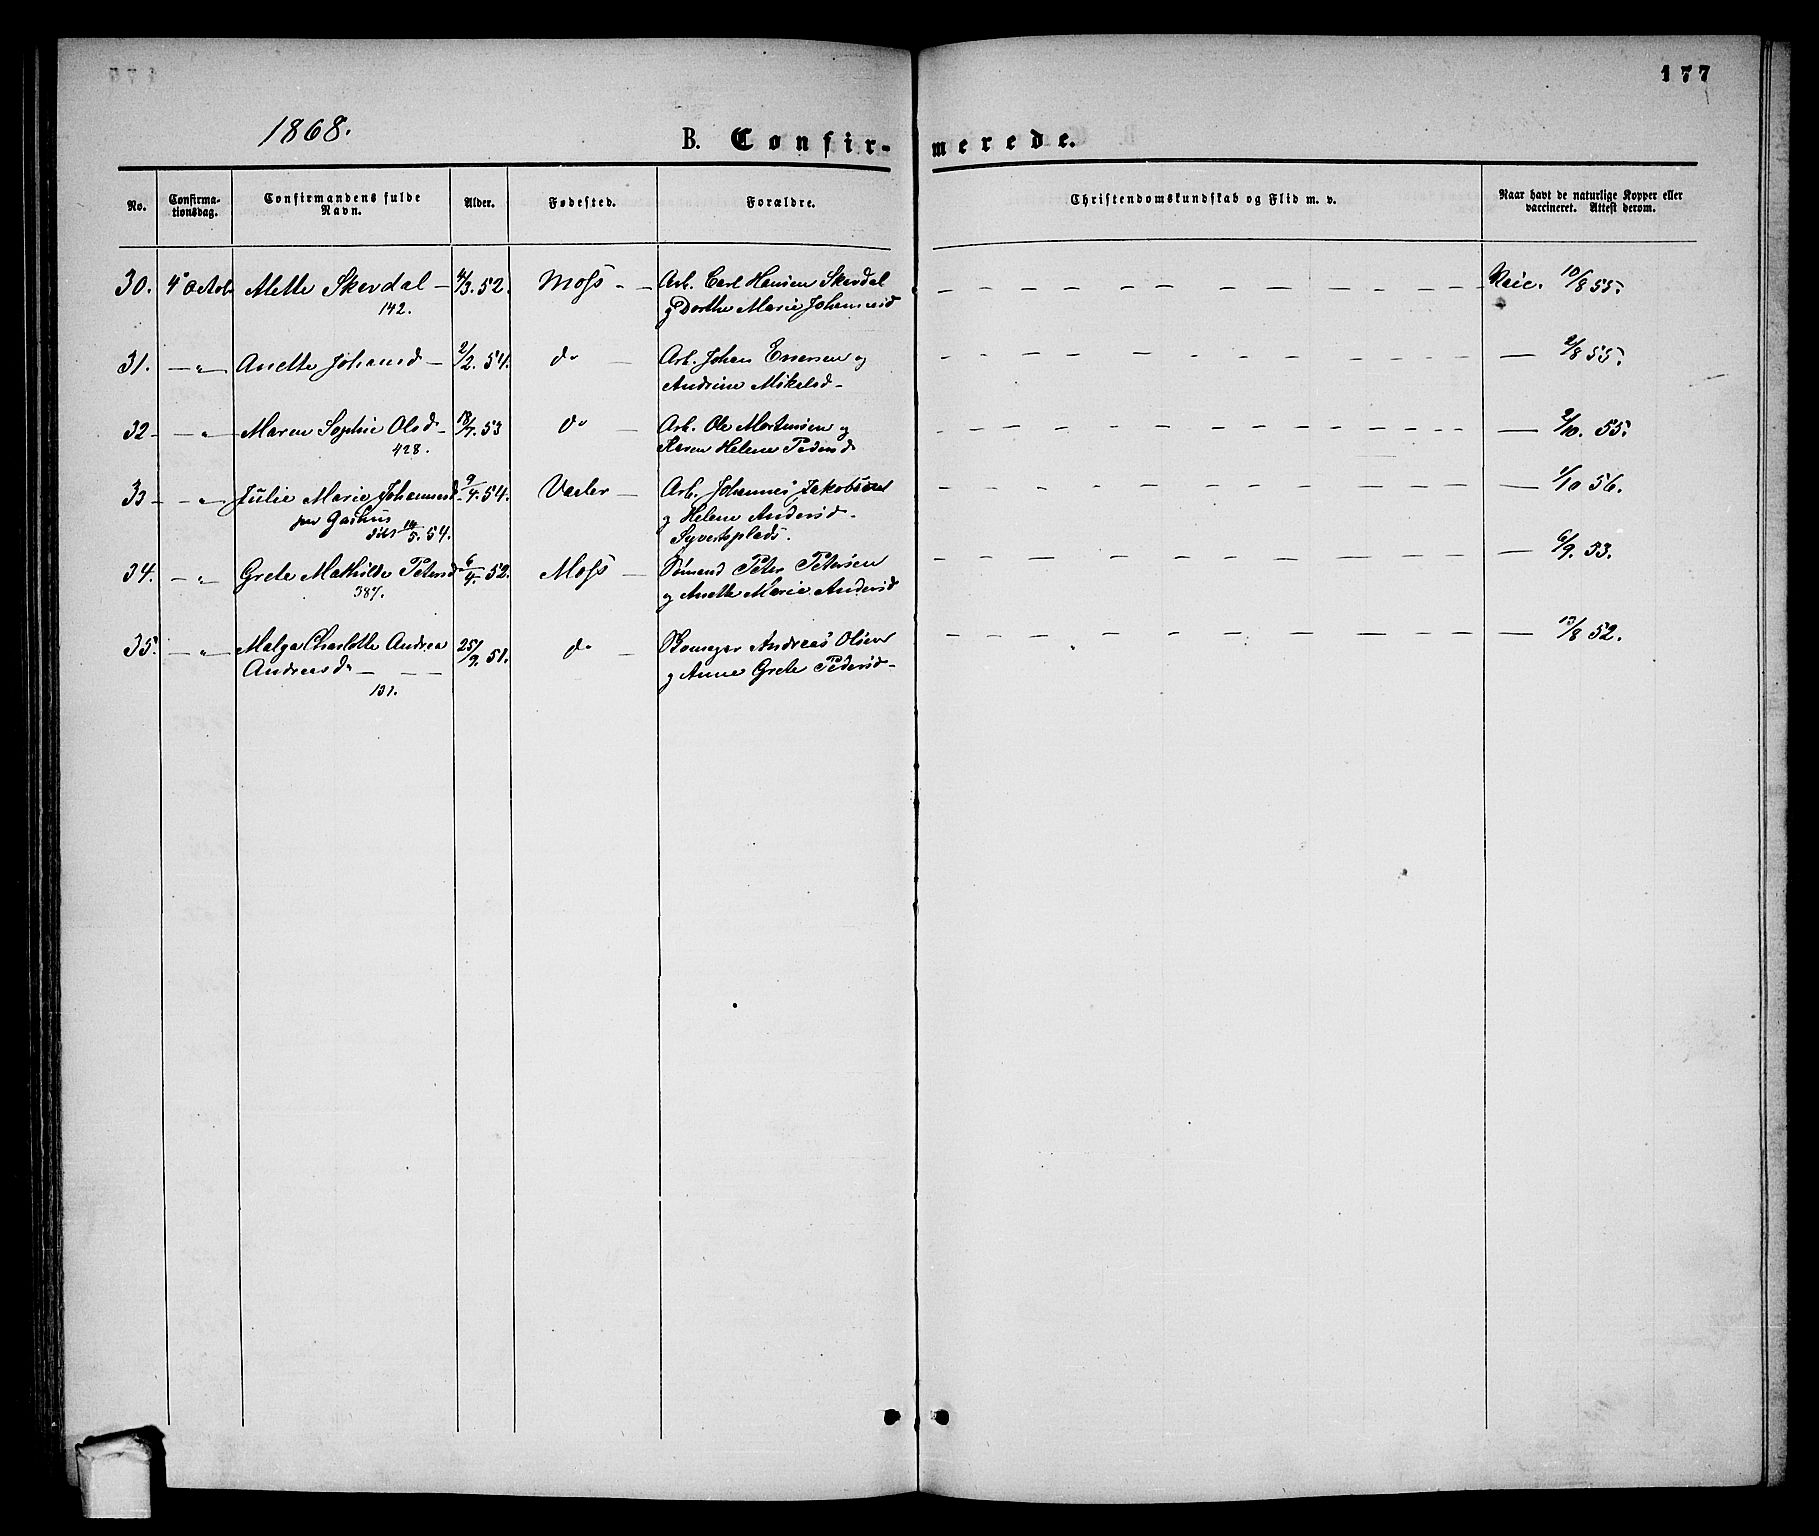 177
1868.
B. Confir-merede.
No. Confirma-tionsdag. Confirmandens fulde Navn. Alder. Fødested. Forældre. Christendomskundskab og Flid m. v. Naar havt de naturlige Kopper eller vaccineret. Attest derom.
30. 4 Octob Mette Skerdal — 4/3. 52. Moss - — Arb. Carl Hansen Skerdal 10/8 55.
142. og Dorthe Marie Johannesd
31. —„— Anette Johansd — 2/2. 54. do — Arb. Johan Enersen og — 2/8 55.
Andrine Mikelsd -
32 - —„— Maren Sophie Olsd - 18/7. 53 do — Arb. Ole Mortensen og — 2/10. 55.
428. Karen Helene Pedersd
33 - —„— Julie Marie Johannesd 9/4. 54. Vaaler — Arb. Johannes Jakobsen — 1/10 56.
54. og Helene Andersd -
Syvertsplads.
34. —„— Grete Mathilde Petersd 6/4. 52. Moss — Peter Petersen — 6/9. 53.
387. og Anette Marie Andersd
35. —„— Charlotte Andrea 25/9. 51. do — Andreas Olsen — 13/8 52.
Andreasd — — — og Anne Grete Pedersd -
131.